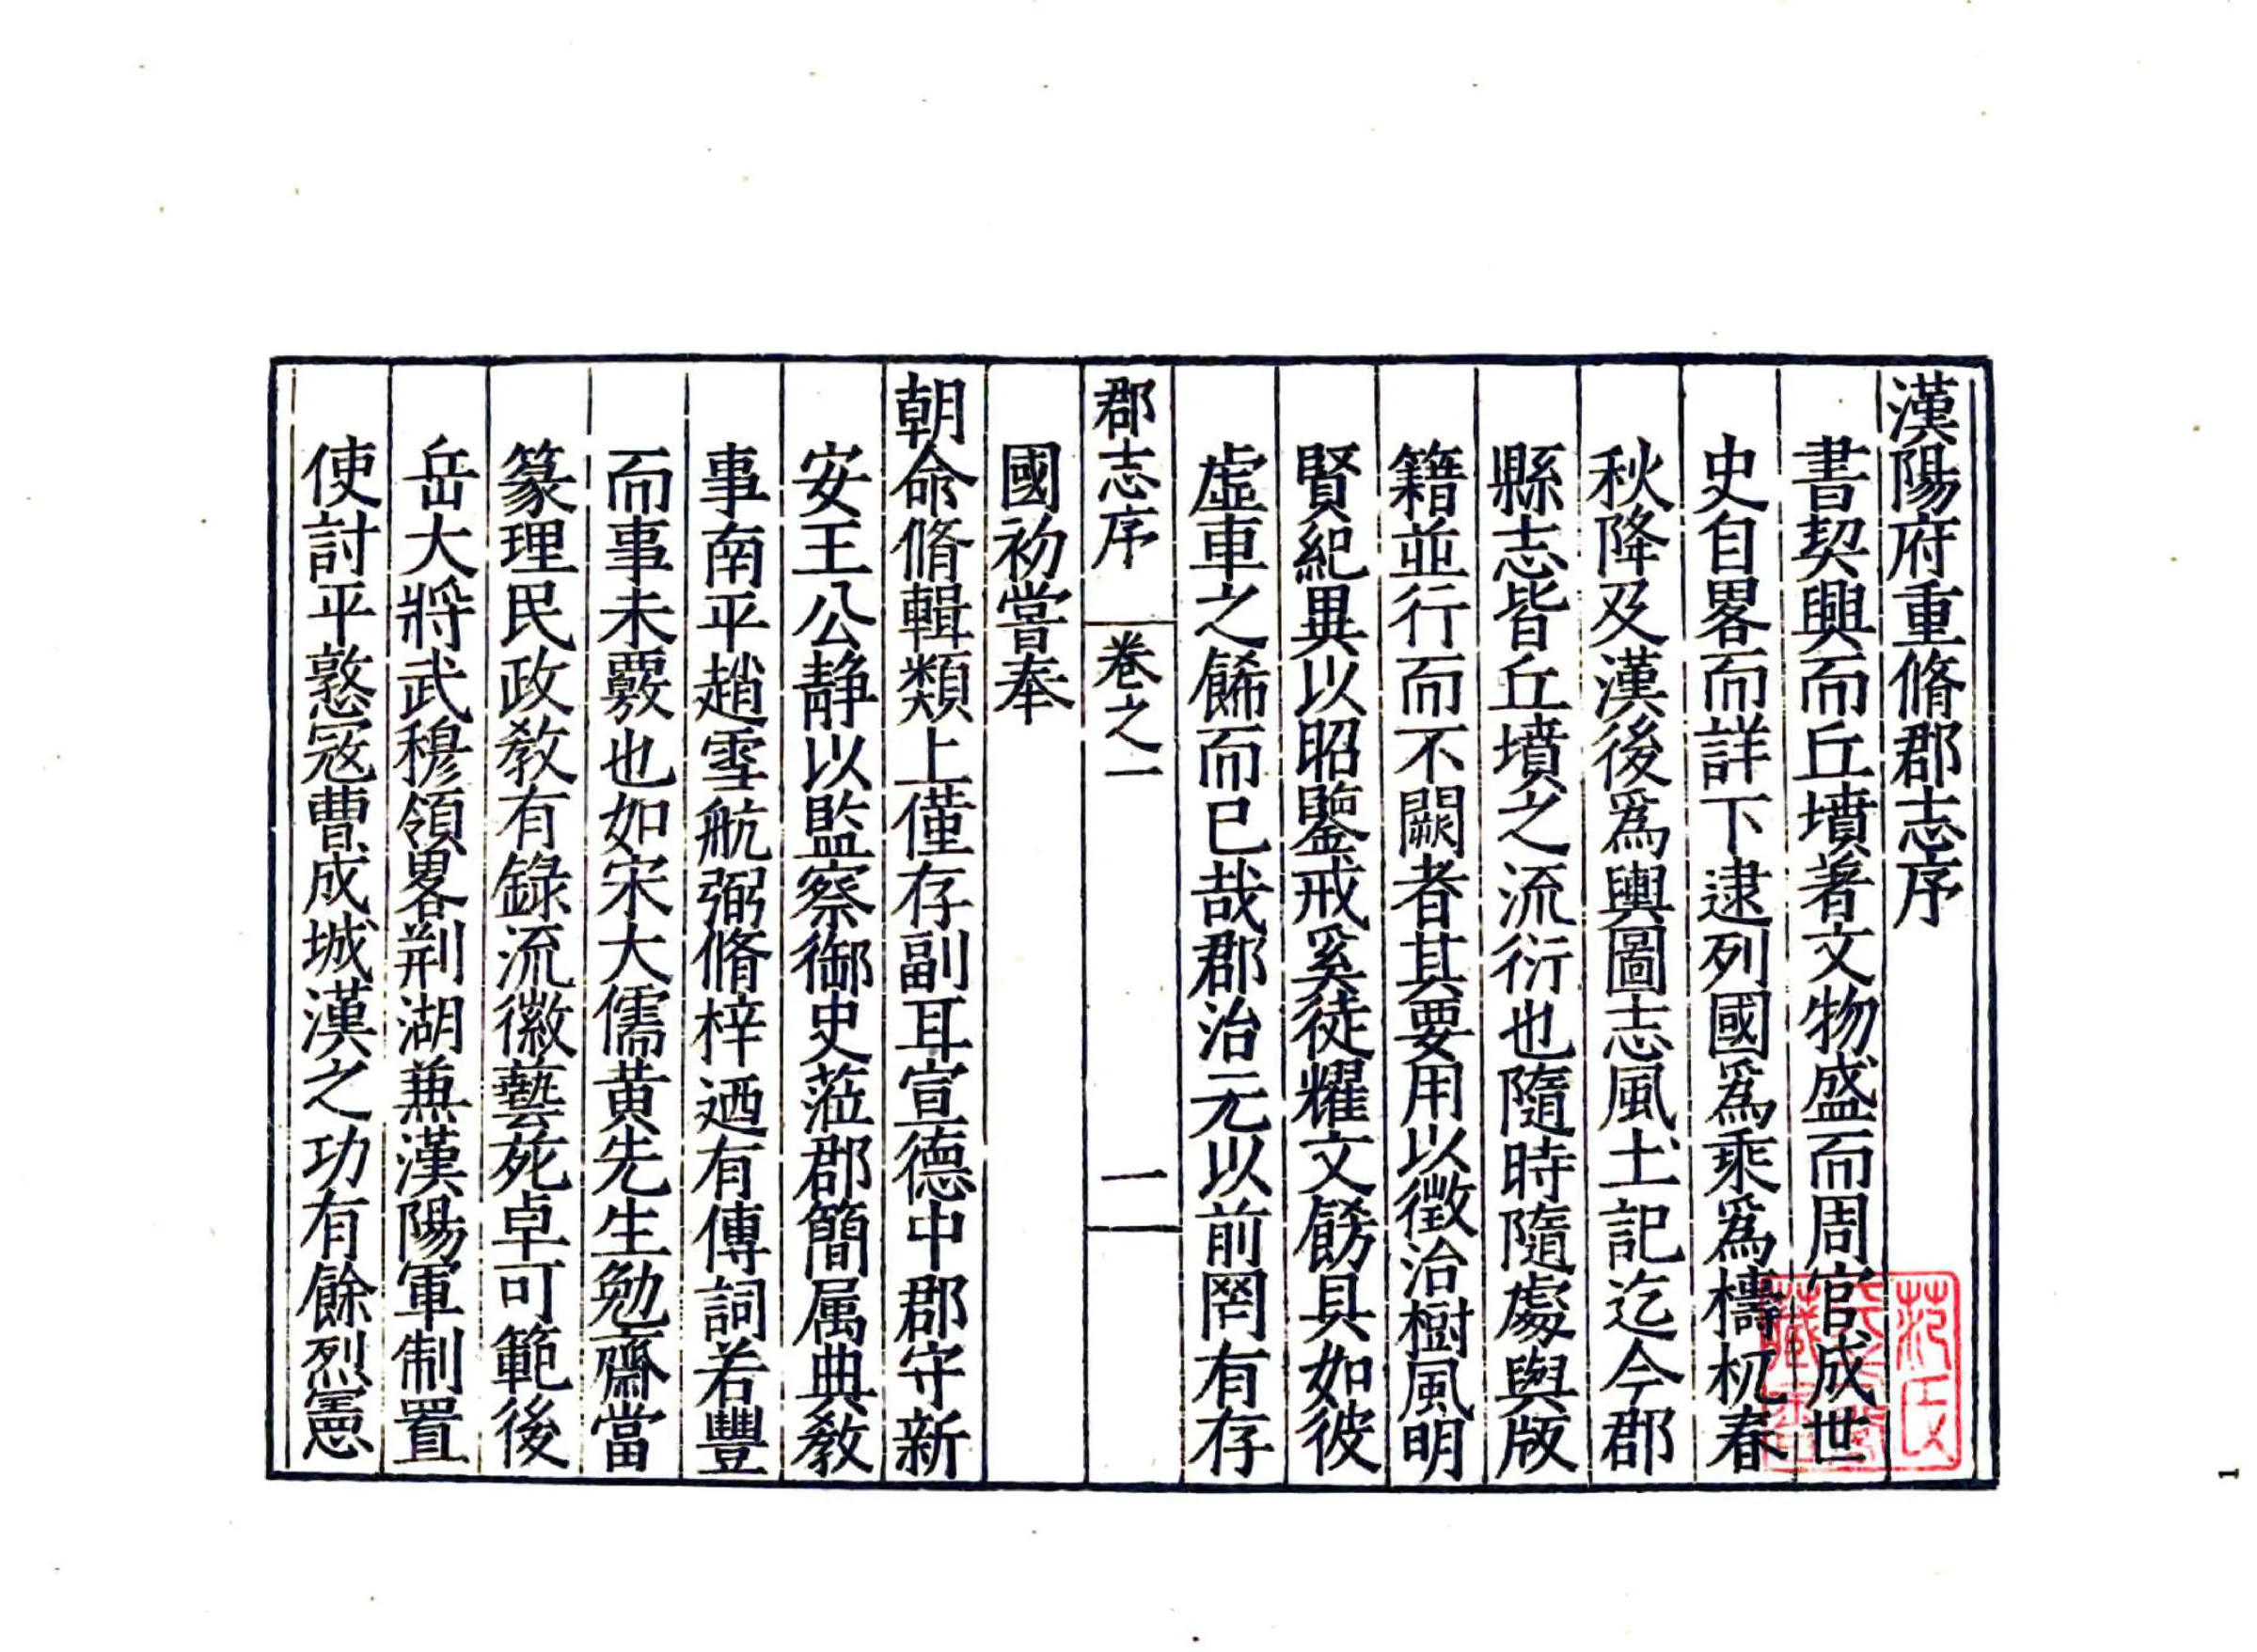 漢陽府重脩郡志序
書契興而丘墳著文物盛而周官成世
史自畧而詳下逮列國爲乘爲檮杌春
秋降及漢後爲輿圖志風土記迄今郡
縣志皆丘墳之流衍也隨時隨處與版
籍並行而不闕者其要用以徵治樹風明
賢紀異以昭鑒戒奚徒耀文餝具如彼
虛車之餙而已哉郡治元以前罔有存
郡志序 卷之一 一
國初嘗奉
朝命脩輯類上僅存副耳宣德中郡守新
安王公靜以監察御史蒞郡簡属典敎
事南平趙雪航弼脩梓迺有傳詞若豐
而事未覈也如宋大儒黄先生勉齋當
篆理民政敎有錄流徽藝苑卓可範後
岳大將武穆領畧荆湖兼漢陽軍制置
使討平憝寇曹成城漢之功有餘烈憲
范氏天一閣藏書
1